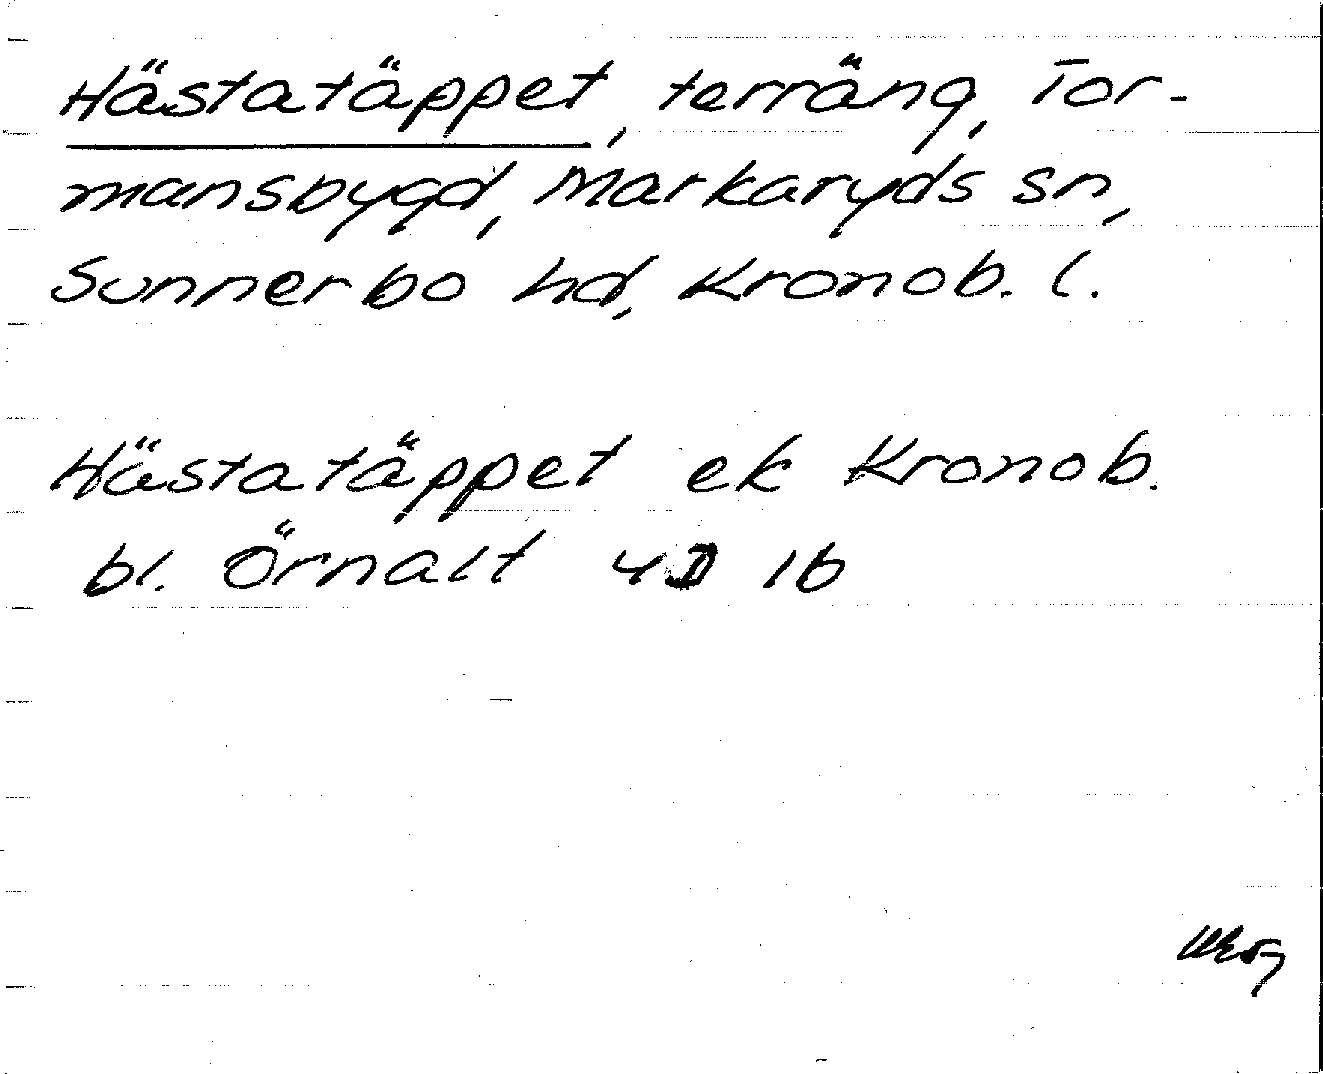 Hästatäppet, terräng, Tor-
mansbygd, Markaryds sn,
Sunnerbo hd, Kronob. l.
Hästatäppet ek Kronob.
bl. Örnalt 4D 1b